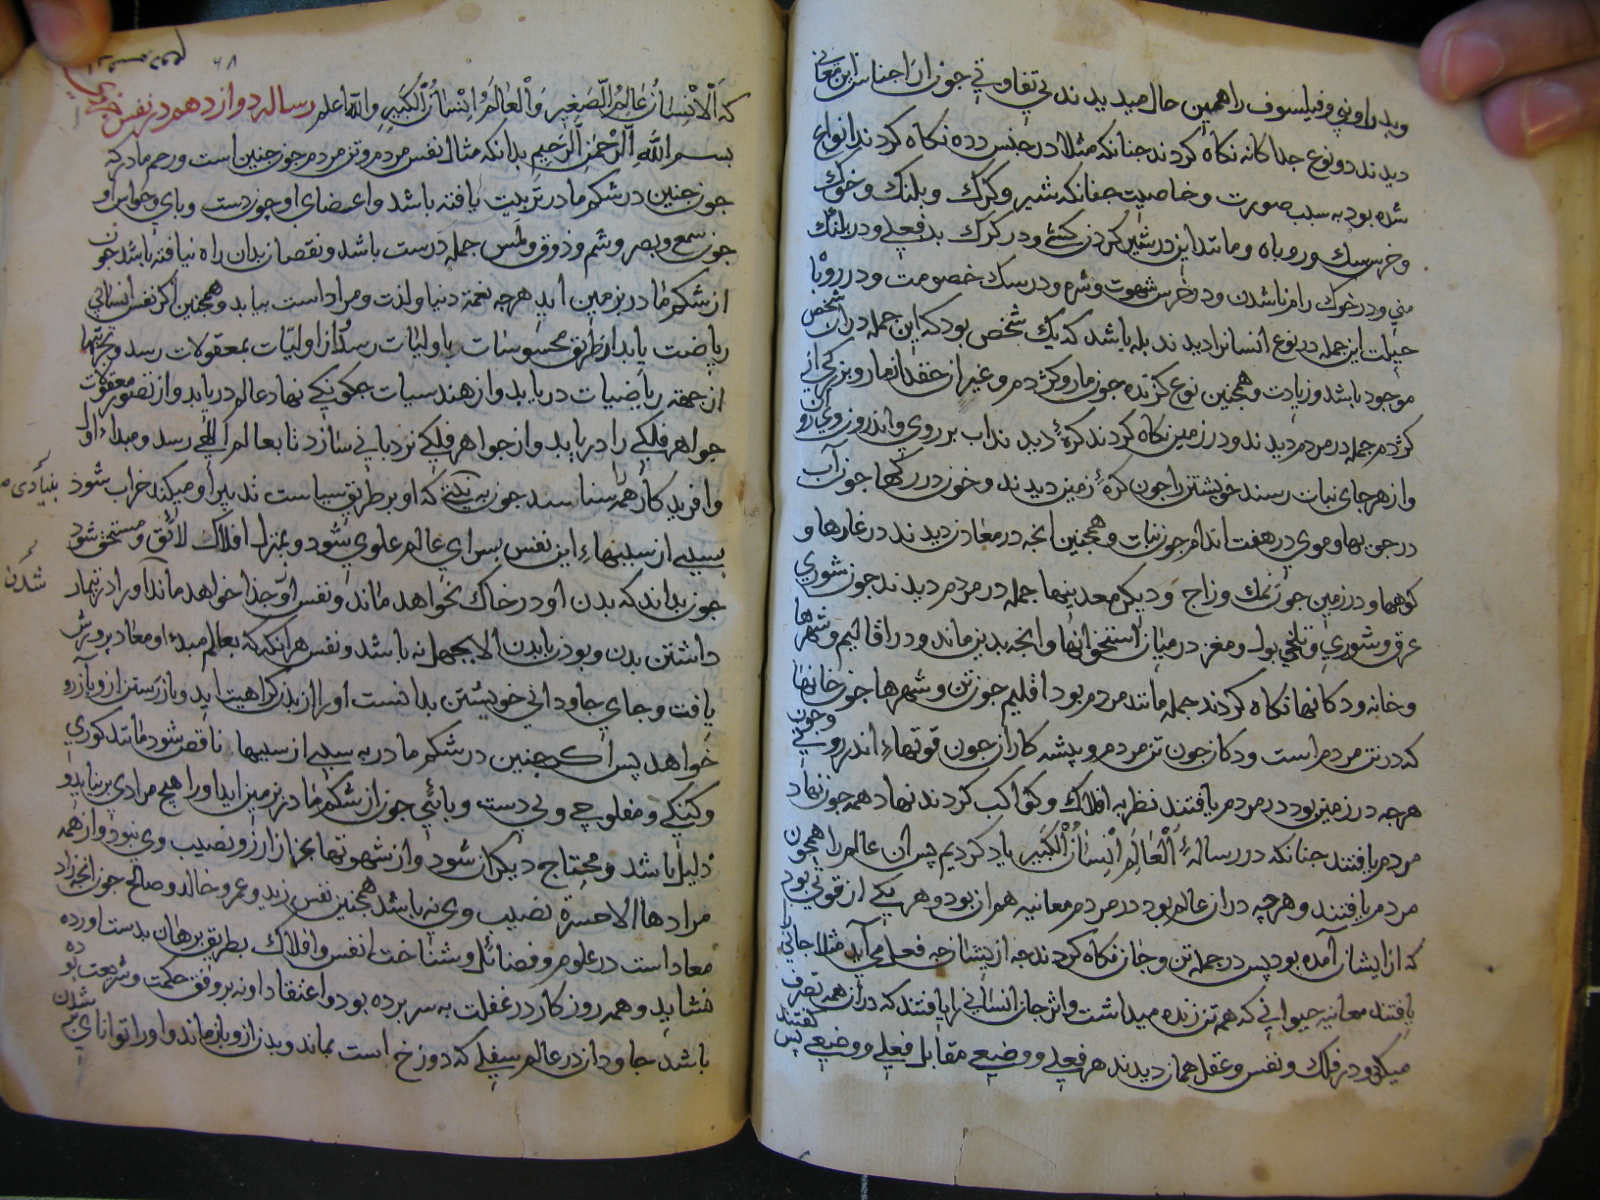 وبدراونی وفیلسوف را همین حال میدیدند بی تفاوتی جون ازان اجناس این معانی
دیدند دو نوع جداکانه نکاه کردند جنانکه مثلا در جنس دده نکاه کردند انواع
شده بود به سبب صورت و خاصیت جنانکه شیر و کرک و بلنک و خوک
و خرس سک و روباه و مانند این در شیر کردن کشی و در کرک بدفعلی و در بلنک
منی و در خوک رام ناشدن و در خرس شهوت و شرم و در سک خصومت و در روباه
حیلت این جمله در نوع انسان را دیدند بله باشد که یک شخص بود که این جمله دران شخص
موجود باشد و زیادت و همجنین نوع کزنده جون مار و کژدم و غیر از حقد از مار و بزرکی از
کژدم جمله در مردم دیدند و در زمین نکاه کردند کرهٔ دیدند اب بر روی و اندرون وی روان
و از هر جای نبات رسند خویشتن را جون کرهٔ زمین دیدند و خون در رکها جون آب
در جویها و موی در هفت اندام جون نبات و همجنین انجه در معادن دیدند در غارها و
کوهها و در زمین جون نمک و زاج و دیکر معدنیها جمله در مردم دیدند جون شوری
عرق و شوری و تلخی بول و مغز در میان استخوانها و انجه بدین ماند و در اقالیم و شهرها
و خانه و دکانها نکاه کردند جمله مانند مردم بود اقلیم جون تن و شهرها جون خانها
که در تن مردم است و دکان جون تن مردم و پیشه کاران جون قوتهاء اندرونی و جون
هرچه در زمین بود در مردم یافتند نظر به افلاک و کواکب کردند نهاد همه جون نهاد
مردم یافتند جنانکه در رسالهٔ اَلْعَالَمُ اِنْسَانُ الْکَبِیر یاد کردیم پس ان عالم را همجون
مردم یافتند و هرچه دران عالم بود در مردم معاینه همان بود و هر یکی از قوتی بود
که از ایشان آمده بود پس در جمله تن و جان نکاه کردند جه از یشان جه فعل می آید مثلا جانی
یافتند معاینه حیوانی که هم تن زنده میداشت و اثر جان انسانی را یافتند که دران همه تصرف
میکرد و در فلک و نفس و عقل همان دیدند هر فعلی و وضعی مقابل فعلی و وضعی پس کفتند
۷۶
که اَلْاِنْسَانُ عَالَمُ الصَّغِیرِ وَالْعَالَمُ اِنْسَانُ الْکَبِیرِ والله اعلم رساله دوازدهم در نفس جزوی
بسم الله الرحمن الرحیم بدانکه مثال نفس مردم و تن مردم جون جنین است و رحم مادر که
جون جنین در شکم مادر تربیت یافته باشد و اعضای او جون دست و پای و حواس او
جون سمع و بصر و شم و ذوق و لمس جمله درست باشد و نقصان بدان راه نیافته باشد جون
از شکم مادر بزمین اید هرچه نعمت دنیا و لذت و مراد است بیابد و همجنین اکر نفس انسانی
ریاضت یابد از طریق محسوسات باولیات رسد و از اولیات بمعقولات رسد و تجربتها
از جهت ریاضیات دریابد و از هندسیات جکونکی نهاد عالم دریابد و از تصور معقولات
جواهر فلکی را دریابد و از جواهر فلکی نردبانی سازد تا بعالم الهی رسد و مبداء اول
و افریدکار همه شناسد جون بنیتی که او بر طریق سیاست تدبیر او میکند خراب شود
بسببی از سببهاء این نفس بسرای عالم علوی شود و بمنزل افلاک لائق و مستحق شود
جون بداند که بدن او در خاک بخواهد ماند و نفس او جدا خواهد ماند او را در تیمار
داشتن بدن و بودن با بدن الا بجهل نه باشد و نفس هر انکه که بعالم مبداء و معاد پرورش
یافت و جای جاودانی خویشتن بدانست او را از بدن کراهیت اید و باز رستن ازو بآرزو
خواهد پس اکر جنین در شکم مادر به سببی از سببها ناقص شود مانند کوری
و کنکی و مفلوجی و بی دست و پائی جون از شکم مادر بزمین اید او را هیچ مرادی بر نیاید و
ذلیل باشد و محتاج دیکران شود و از شهوتها بجز از ارزو نصیب وی نبود و از همه
مرادها الا حسرة نصیب وی نه باشد همجنین نفس زید و عمرو خالد و صالح جون انجه زاد
معاد است در علوم و فضائل و شناخت انفس و افلاک بطریق برهان بدست اورده
نشاید و همه روزکار در غفلت به سر برده بود و اعتقاد او نه بر وفق حکمت و شریعت بوده
باشد جاودان در عالم سفلی که دوزخ است بماند و بدن ازو باز ماند و او را توانای بر شدن
شدن